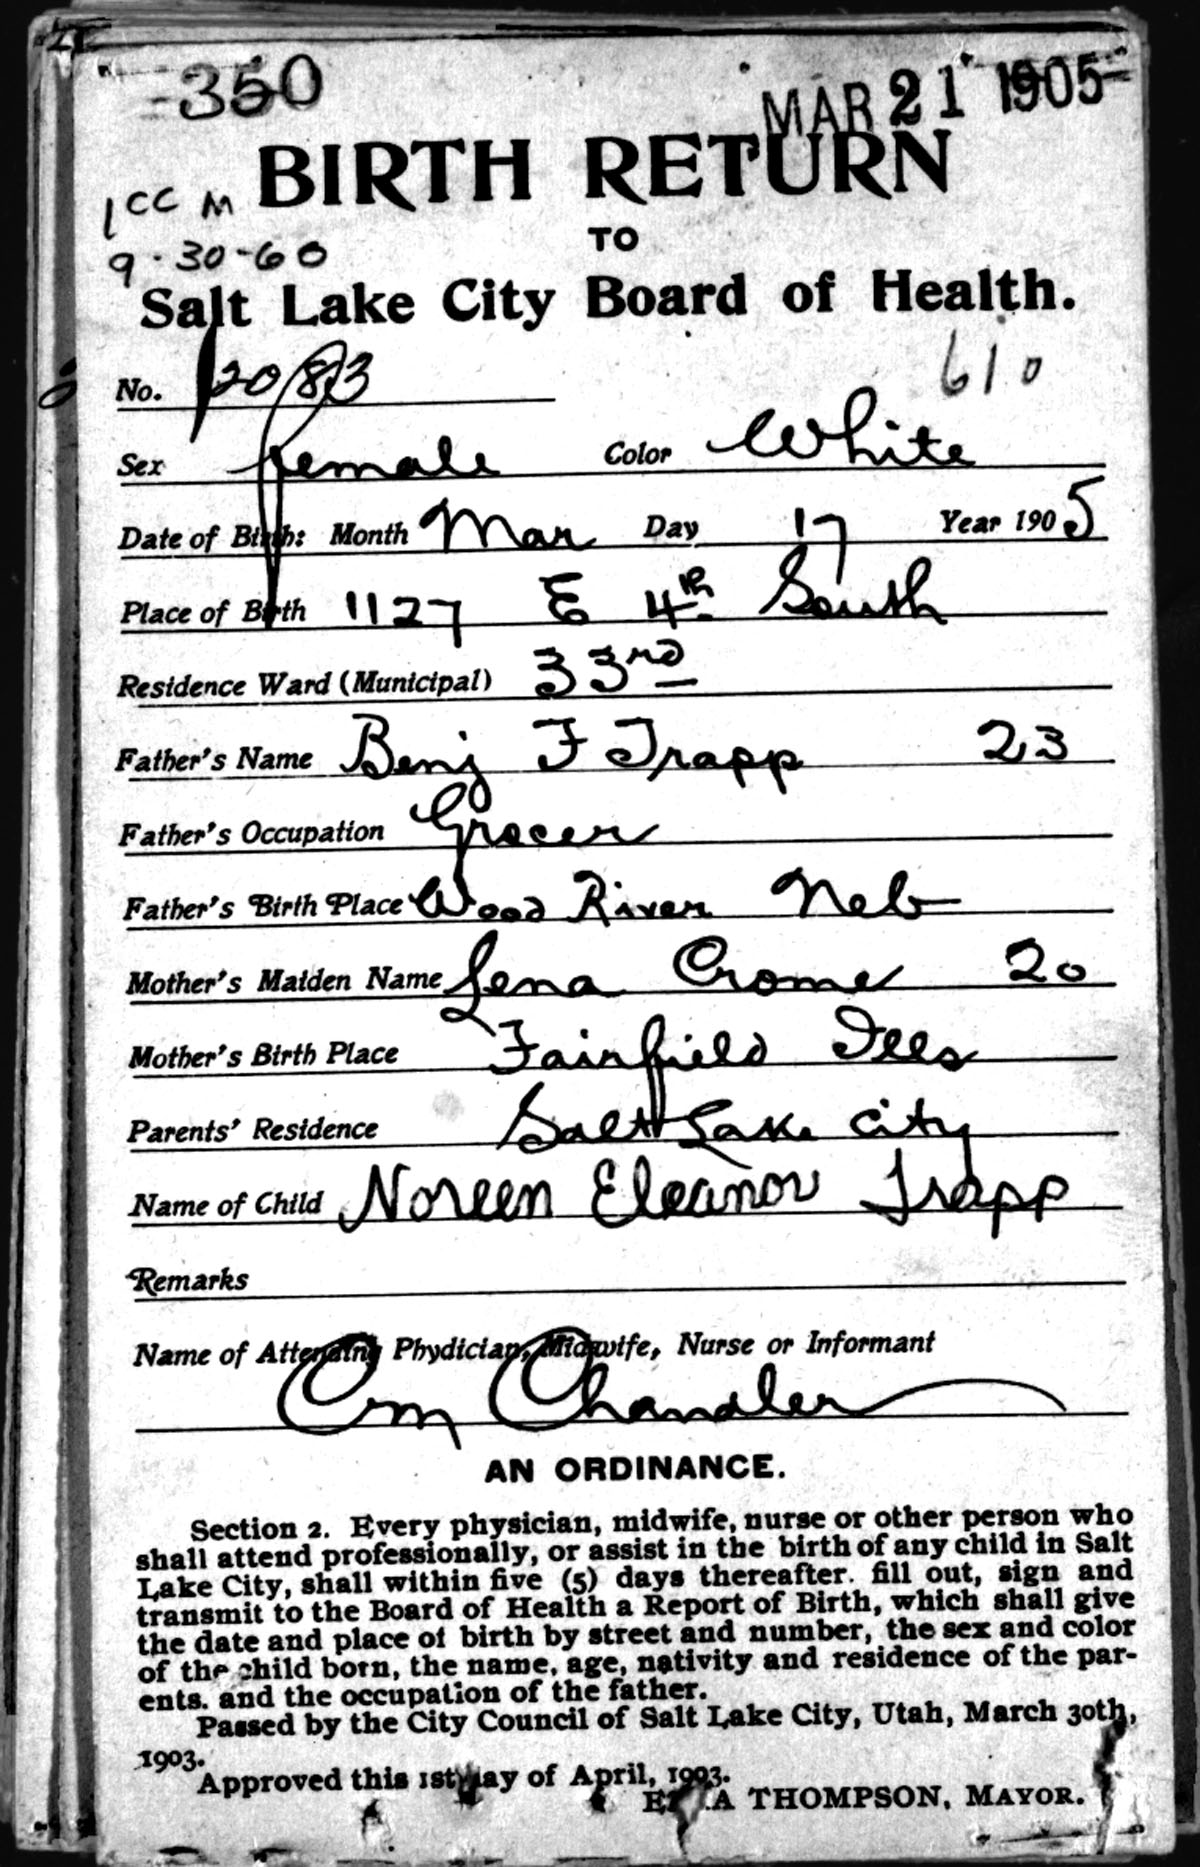 350
MAR 21 1905
BIRTH RETURN
1CC M
TO
9-30-60
Salt Lake City Board of Health.
610
No. 12083
Sex female Color White
Date of Birth: Month Mar Day 17 Year 1905
Place of Birth 1127 E 4th South
Residence Ward (Municipal) 33rd
Father's Name Benj F Trapp 23
Father's Occupation Grocer
Father's Birth Place Wood River Neb
Mother's Maiden Name Lena Crome 20
Mother's Birth Place Fairfield Ills
Parents' Residence Salt Lake City
Name of Child Noreen Eleanor Trapp
Remarks
Name of Attending Phydician, Midwife, Nurse or Informant
Chandler
AN ORDINANCE.
Section 2. Every physician, midwife, nurse or other person who
shall attend professionally, or assist in the birth of any child in Salt
Lake City, shall within five (5) days thereafter. fill out, sign and
transmit to the Board of Health a Report of Birth, which shall give
the date and place of birth by street and number, the sex and color
of the child born, the name, age, nativity and residence of the par-
ents. and the occupation of the father.
Passed by the City Council of Salt Lake City, Utah, March 30th,
1903.
Approved this 1st day of April, 1903.
THOMPSON, MAYOR.